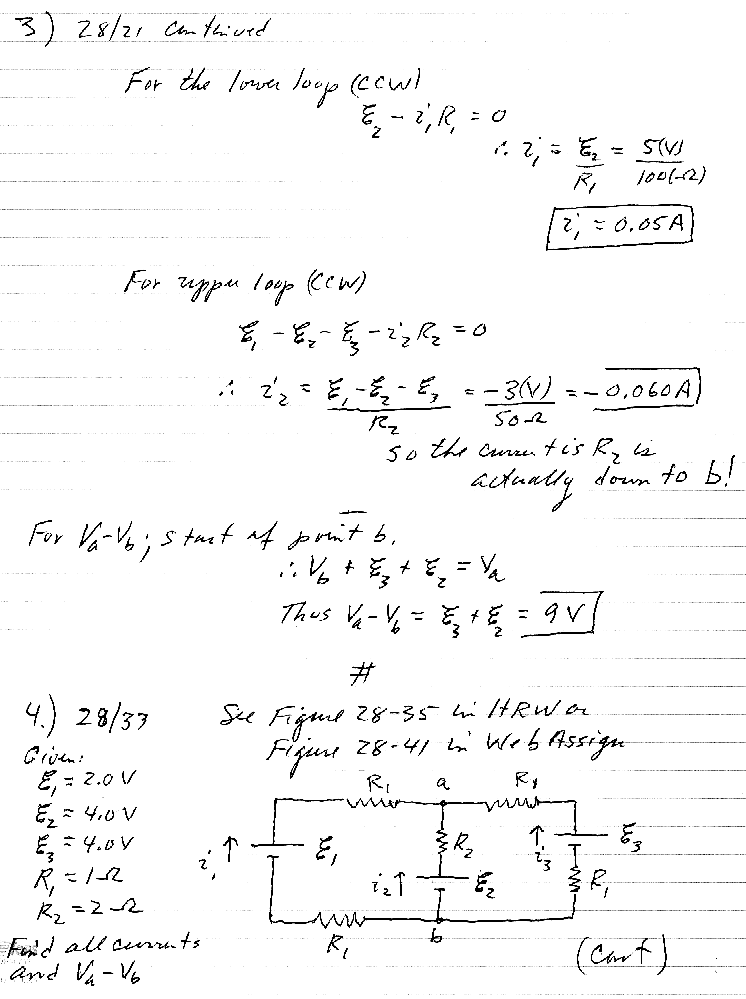 3) 28/21 Continued
For the lower loop (CCW)
ℰ₂ - i₁R₁ = 0
∴ i₁ = ℰ₂/R₁ = 5(V)/100(Ω)
i₁ = 0.05A
For upper loop (CCW)
ℰ₁ - ℰ₂ - ℰ₃ - i₂R₂ = 0
∴ i₂ = (ℰ₁ - ℰ₂ - ℰ₃)/R₂ = -3(V)/50Ω = -0.060A
so the current is R₂ is
actually down to b!
For Va-Vb; start at point b.
∴ Vb + ℰ₃ + ℰ₂ = Va
Thus Va-Vb = ℰ₃ + ℰ₂ = 9V
#
4.) 28/33 See Figure 28-35 in HRW or
Figure 28-41 in WebAssign
Given:
ℰ₁ = 2.0 V
ℰ₂ = 4.0 V
ℰ₃ = 4.0 V
R₁ = 1Ω
R₂ = 2Ω
Find all currents
and Va-Vb
R₁ a R₁
i₁ ↑ ℰ₁ R₂ i₃ ↑ ℰ₃
i₂ ↑ ℰ₂ R₁
R₁ b
(Cont)